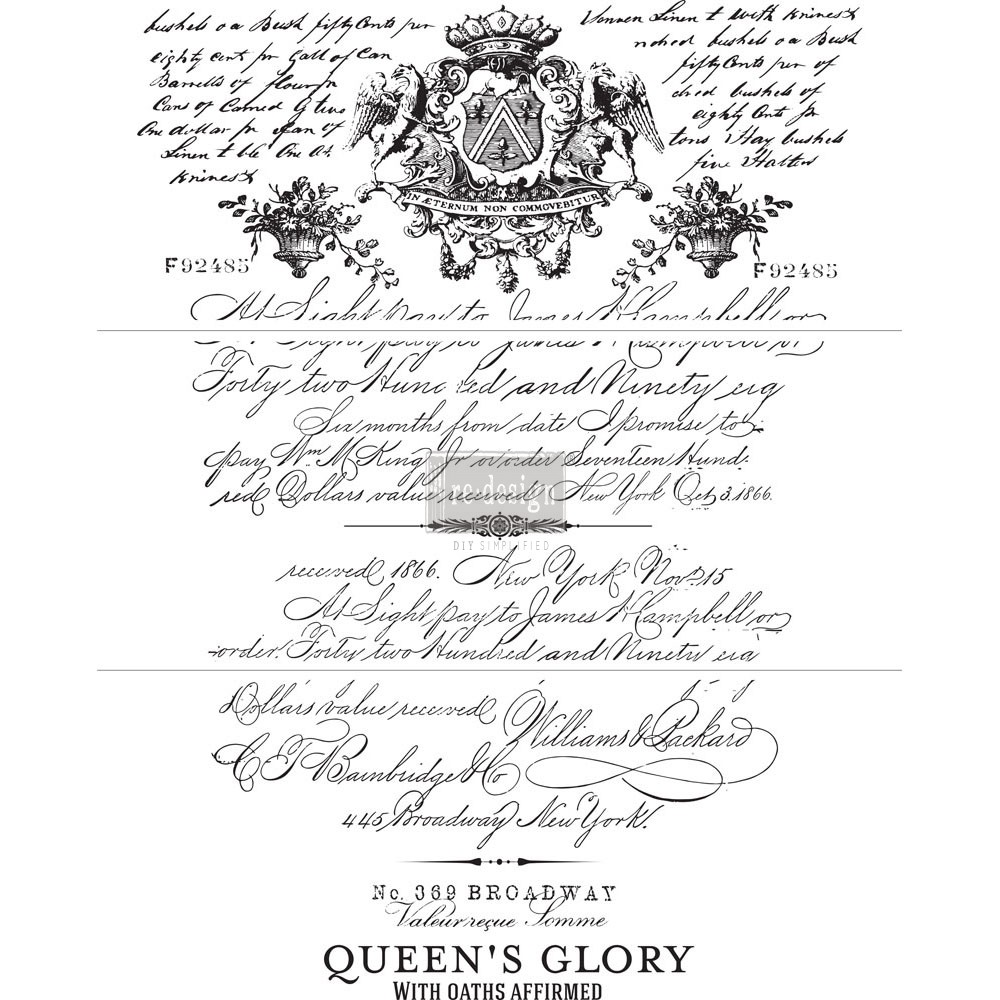 bushels o a Bush fifty Cents per
eighty cent pr Gall of Can
Barrells of flour pr
Cans of Carned G two
One dollar pr of
Linen & ble One At
Knines &
Linen & with Knines &
bushels o a Bush
fifty Cents per of
bushels of
eighty Cents pr
tons Hay bushels
five Hatters
1811
IN ÆTERNUM NON COMMOVEBITUR
F92485
F92485
At Sight pay to James W Campbell or
Sight pay to James W Campbell or
Forty two Hundred and Ninety eig
Six months from date I promise to
pay Wm M King Jr or order Seventeen Hund-
red Dollars value received New York Oct 3. 1866.
re·design
DIY SIMPLIFIED
received 1866. New York Nov. 15
At Sight pay to James W Campbell or
order. Forty two Hundred and Ninety eig
Dollars value received Williams & Packard
C T Bambridge & Co
445 Broadway New York.
No. 369 BROADWAY
Valeur reçue Somme
QUEEN'S GLORY
WITH OATHS AFFIRMED